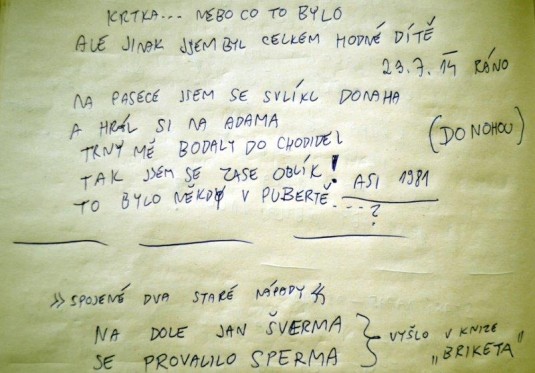 KRTKA... NEBO CO TO BYLO
ALE JINAK JSEM BYL CELKEM HODNÉ DÍTĚ
29.7.14 RÁNO
NA PASECE JSEM SE SVLÍKL DONAHA
A HRÁL SI NA ADAMA
TRNY MĚ BODALY DO CHODIDEL (DO NOHOU)
TAK JSEM SE ZASE OBLÍK!
TO BYLO NĚKDY V PUBERTĚ....? ASI 1981
»SPOJENÉ DVA STARÉ NÁPADY«
NA DOLE JAN ŠVERMA
SE PROVALILO SPERMA
} VYŠLO V KNIZE
„BRIKETA"